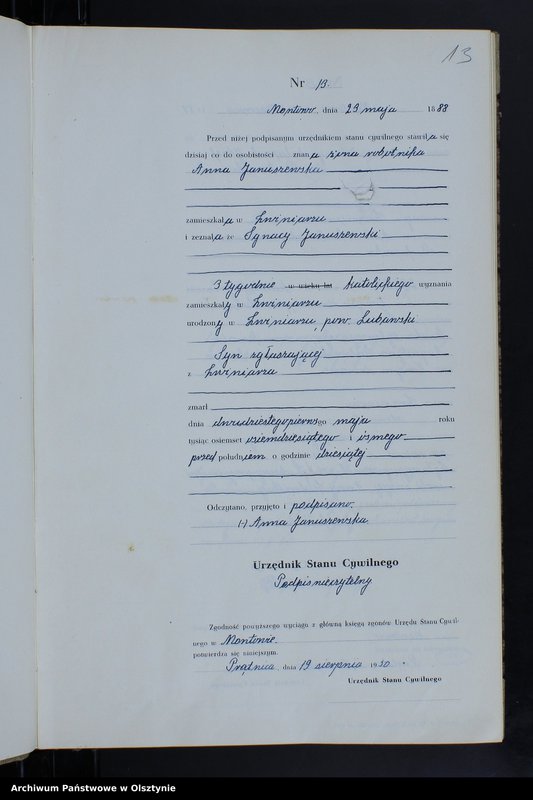 13
Nr 13.
Montowo, dnia 23 maja 1888
Przed niżej podpisanym urzędnikiem stanu cywilnego stawiła się
dzisiaj co do osobistości znana żona robotnika
Anna Januszewska
zamieszkała w Zwiniarzu
i zeznała że Ignacy Januszewski
3 tygodnie w wieku lat katolickiego wyznania
zamieszkały w Zwiniarzu
urodzony w Zwiniarzu, pow. Lubawski
Syn zgłaszającej
z Zwiniarza
zmarł
dnia dwudziestegopierwszego maja roku
tysiąc osiemset osiemdziesiątego i ósmego
przed południem o godzinie dziesiątej
Odczytano, przyjęto i podpisano.
(-) Anna Januszewska
Urzędnik Stanu Cywilnego
Podpis nieczytelny
Zgodność powyższego wyciągu z główną księgą zgonów Urzędu Stanu Cywil-
nego w Montowie.
potwierdza się niniejszym.
Prątnica, dnia 19 sierpnia 1950.
Urzędnik Stanu Cywilnego
Archiwum Państwowe w Olsztynie